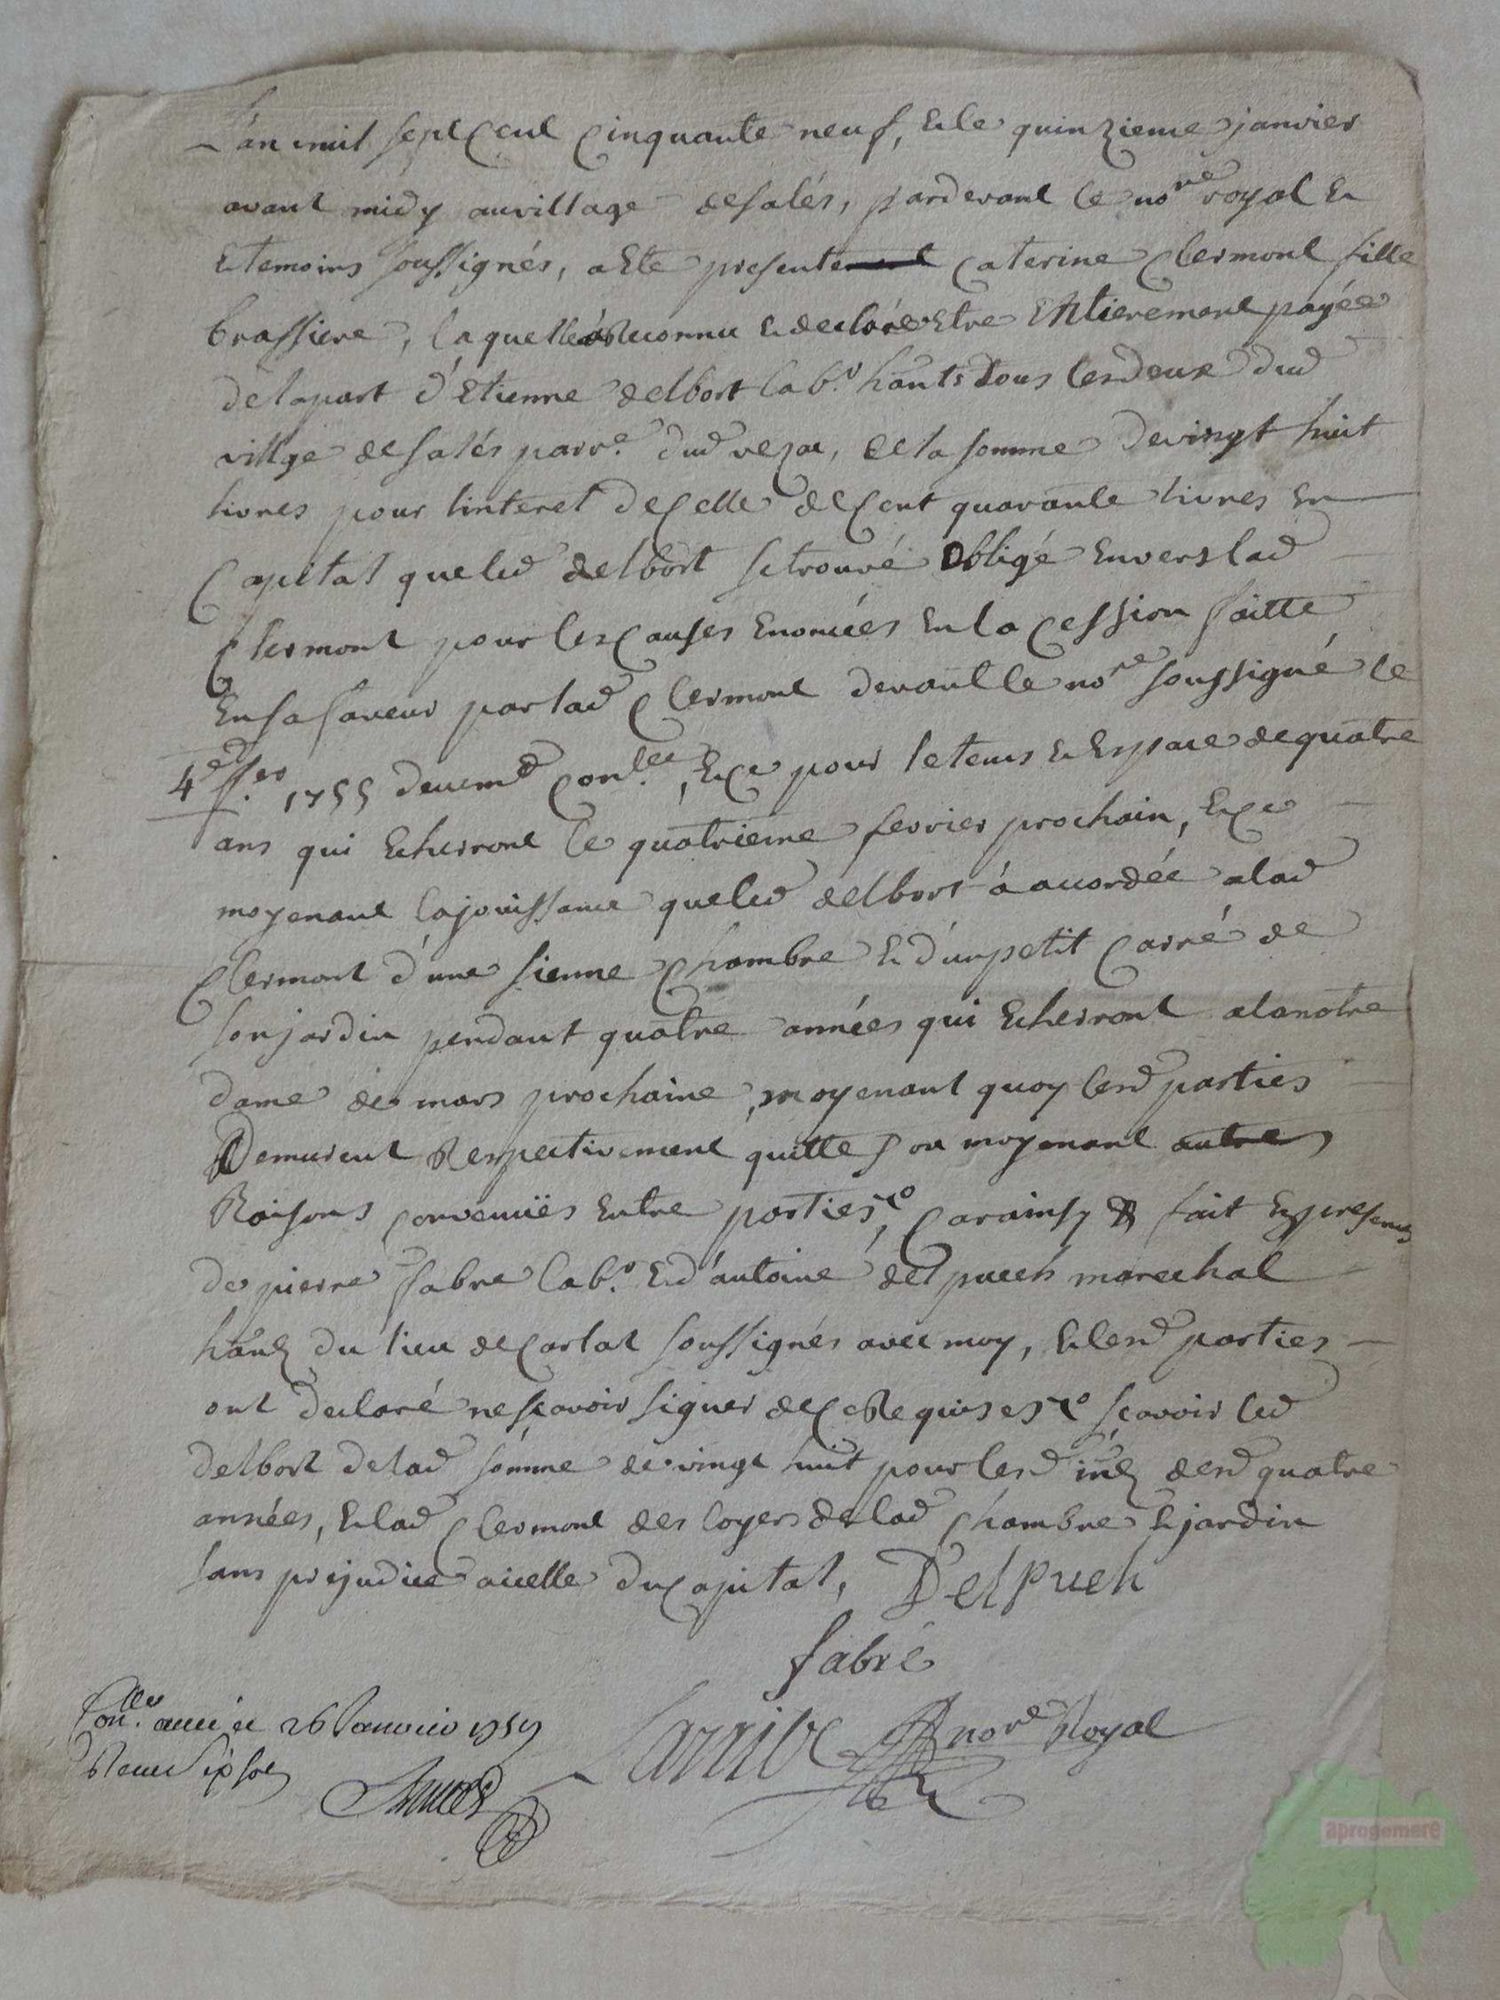 L'an mil sept cent cinquante neuf, et le quinzieme janvier
avant midy au village de salés, pardevant le no.re royal et
et temoins soussignés, a eté presente caterine clermont fille
brassiere, laquelle a reconnu et declaré etre entierement payée
de la part d'Etienne delbort lab.r hants tous les deux dud
villge de salés parr.e dud vezac, de la somme de vingt huit
livres pour linteret de celle de cent quarante livres en
capital que led delbort se trouvé obligé envers lad
clermont pour les causes enoncées en la cession faitte
en sa faveur par lad clermont devant le no.re soussigné le
4e f.er 1755 deuem.t con.lée, et ce pour le tems et espace de quatre
ans qui echerront le quatrieme fevrier prochain, et ce
moyenant la jouissance que led delbort à accordée a lad
clermont d'une sienne chambre et d'un petit carré de
son jardin pendant quatre années qui echerront a la notre
dame de mars prochaine, moyenant quoy lesd parties
Demurent Respectivement quittes ou moyenant autres
Raisons convenuës entre parties, car ainsy fait en presence
de pierre fabre lab.r et d'antoine delpuech marechal
hants du lieu de carlat soussignés avec moy, et lesd parties
ont declaré ne scavoir signer de ce Requises scavoir led
delbort de lad somme de vingt huit pour lesd int desd quatre
années, et lad clermont des loyers de lad chambre et jardin
sans prejudice a icelle du capital, Delpueh
fabré
Con.llé a 26 Janvier 1759
Larribe no.re Royal
Receu